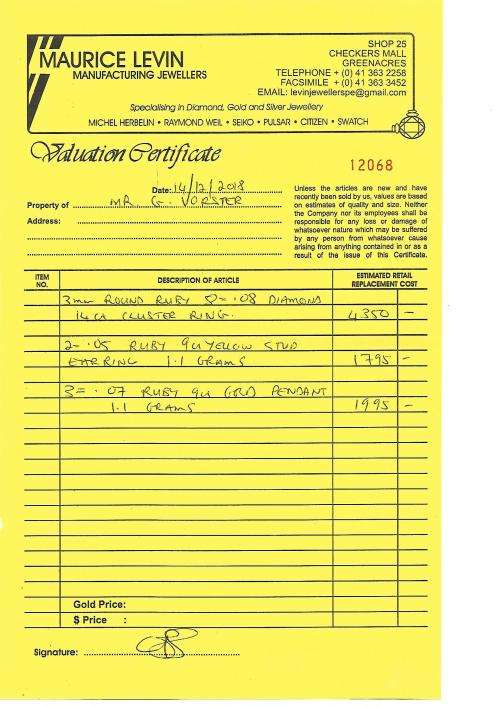 MAURICE LEVIN
MANUFACTURING JEWELLERS
SHOP 25
CHECKERS MALL
GREENACRES
TELEPHONE + (0) 41 363 2258
FACSIMILE + (0) 41 363 3452
EMAIL: levinjewellerspe@gmail.com
Specialising in Diamond, Gold and Silver Jewellery
MICHEL HERBELIN • RAYMOND WEIL • SEIKO • PULSAR • CITIZEN • SWATCH
Valuation Certificate
12068
Date: 14/12/2018
Property of MR G. VORSTER
Address:
Unless the articles are new and have
recently been sold by us, values are based
on estimates of quality and size. Neither
the Company nor its employees shall be
responsible for any loss or damage of
whatsoever nature which may be suffered
by any person from whatsoever cause
arising from anything contained in or as a
result of the issue of this Certificate.
ITEM NO. DESCRIPTION OF ARTICLE ESTIMATED RETAIL REPLACEMENT COST
3mm ROUND RUBY 8= .08 DIAMOND
14ct CLUSTER RING. 4350 –
2= .05 RUBY 9ct YELLOW STUD
EARRING 1.1 GRAMS 1795 –
3= .07 RUBY 9ct GOLD PENDANT
1.1 GRAMS 1995 –
Gold Price:
$ Price :
Signature: